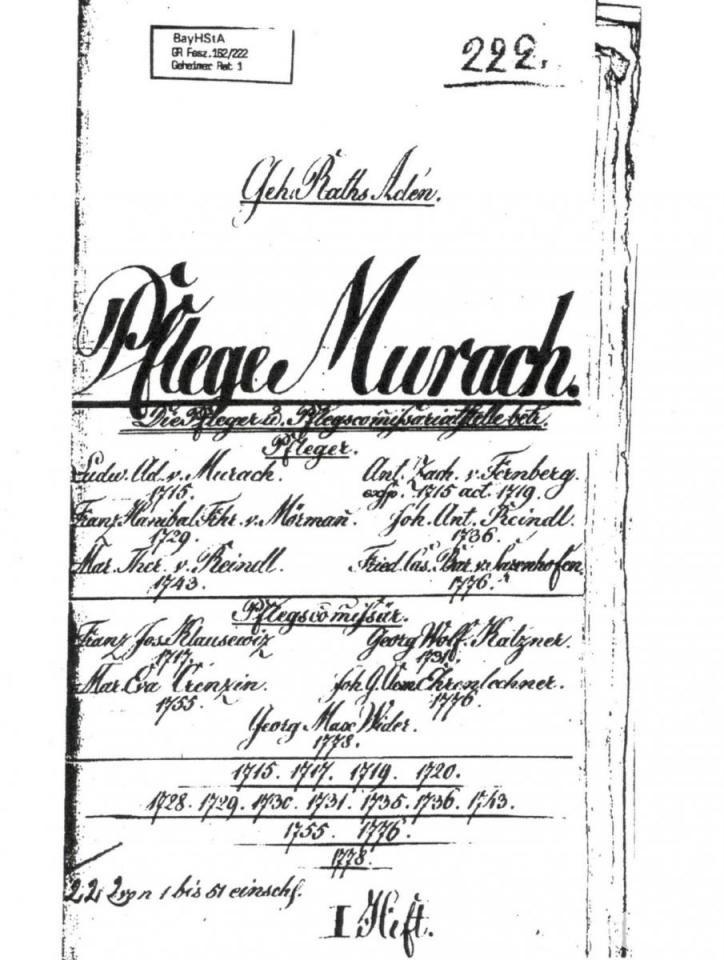 BayHStA
GR Fasz.162/222
Geheimer Rat 1
222.
Geh. Raths Actén.
Pflege Murach.
Die Pfleger u. Pflegscom̄issariatstelle betr.
Pfleger.
Ludw. Ad. v. Murach. Ant. Zach. v. Fernberg.
1715. exsp. 1715 act. 1719.
Franz Hanibal Frhr. v. Mörman̄. Joh. Ant. Reindl.
1729. 1736.
Mar. Ther. v. Reindl. Fried. Cas. Bar. v.
1743. 1776.
Pflegscom̄issär.
Franz Jos. Klausewiz Georg Wolf. Katzner.
1717. 1731.
Mar. Eva Crenzin. Joh. G. Ehrenlechner.
1755. 1776.
Georg Max Wider.
1778.
1715. 1717. 1719. 1720.
1728. 1729. 1730. 1731. 1735. 1736. 1743.
1755. 1776.
1778.
222 von 1 bis 51 einschl.
I Heft.